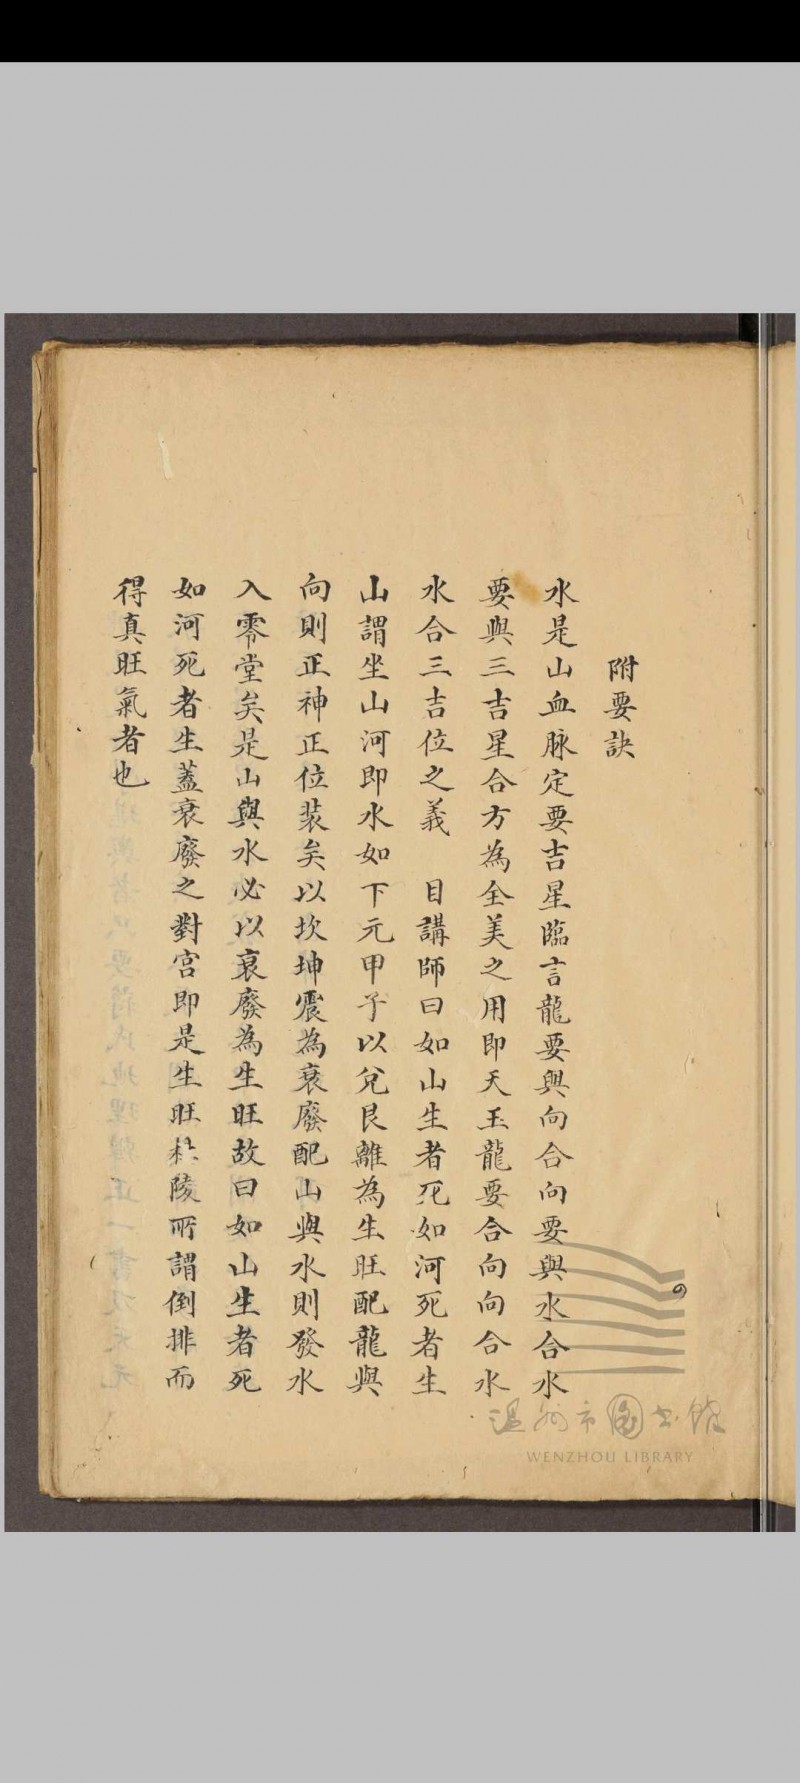 附要訣
水是山血脉定要吉星臨言龍要與向合向要與水合水
要與三吉星合方為全美之用即天玉龍要合向向合水
水合三吉位之義　目講師曰如山生者死如河死者生
山謂坐山河即水如下元甲子以兌艮離為生旺配龍與
向則正神正位装矣以坎坤震為衰廢配山與水則發水
入零堂矣是山與水必以衰廢為生旺故曰如山生者死
如河死者生蓋衰廢之對宮即是生旺杜陵所謂倒排而
得真旺氣者也
温州市圖書館
WENZHOU LIBRARY